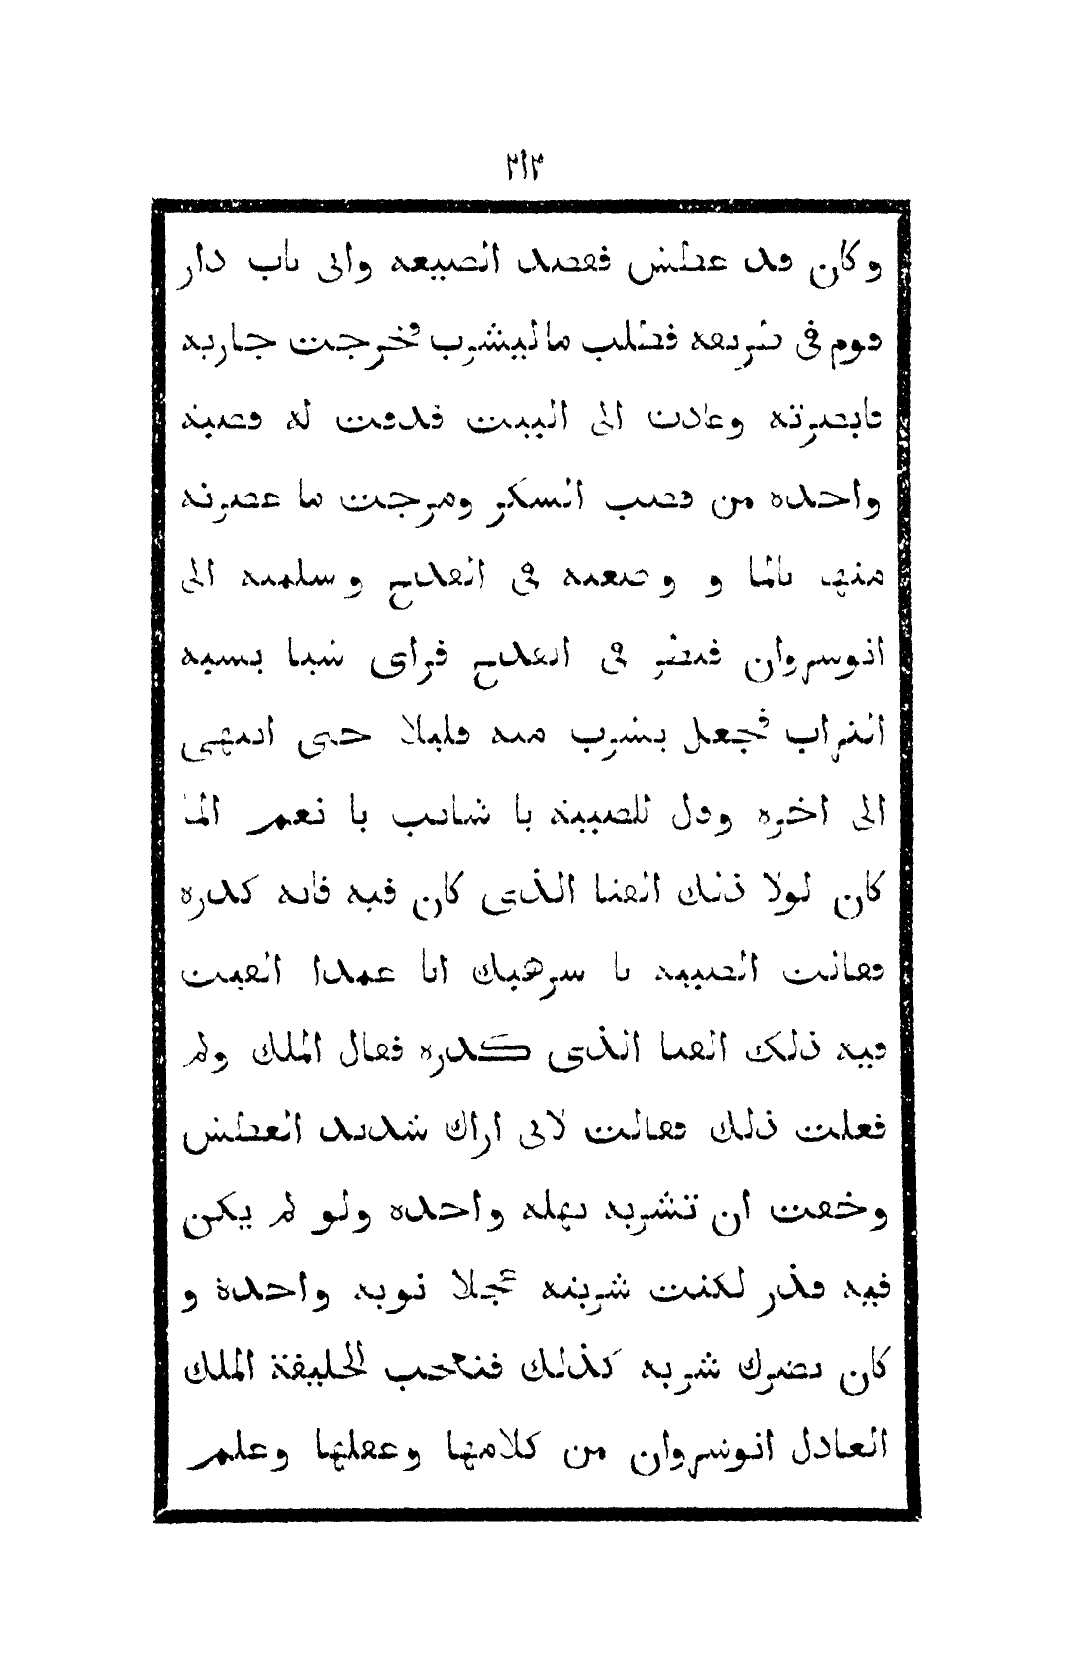 ٣١٣
وكان قد عطش فقصد الضيعه واتى باب دار
قوم في ضريعه فطلب ما ليشرب فخرجت جاريه
فابصرته وعادت الى البيت فدقت له قصبة
واحده من قصب السكر ومزجت ما عصرته
منها بالما و وضعته في القدح وسلمته الى
انوشروان فنظر في القدح فراى شيا يشبه
التراب فجعل يشرب منه قليلا حتى انتهى
الى اخره وقال للصبية يا شابب يا نعم الما
كان لولا ذلك القذا الذي كان فيه فانه كدره
فقالت الصبيه يا سرهنك انا عمدا القيت
فيه ذلك القذا الذي كدره فقال الملك ولم
فعلت ذلك فقالت لاني اراك شديد العطش
وخفت ان تشربه نهله واحده ولو لم يكن
فيه قذر لكنت شربته عجلا نوبه واحدة و
كان يضرك شربه كذلك فتعجب الخليفة الملك
العادل انوشروان من كلامها وعقلها وعلم